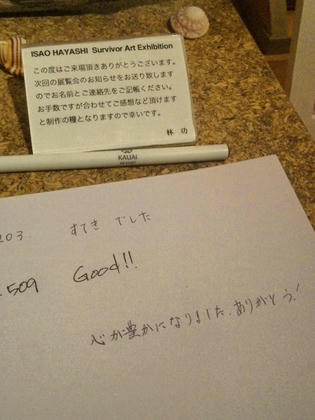 ISAO HAYASHI Survivor Art Exhibition
この度はご来場頂きありがとうございます。
次回の展覧会のお知らせをお送り致します
のでお名前とご連絡先をご記帳ください。
お手数ですが合わせてご感想など頂けます
と制作の糧となりますので幸いです。
林 功
KAUAI
203 すてき でした
509 Good!!
心が豊かになりました、ありがとう!